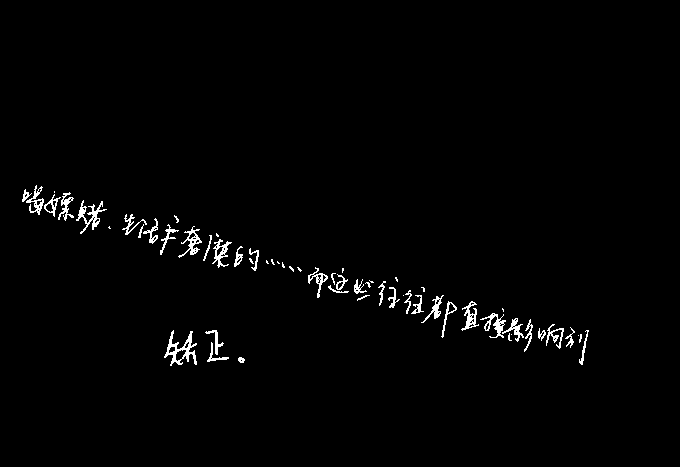 喝嫖赌、生活上奢糜的……而这些往往都直接影响到
矫正。